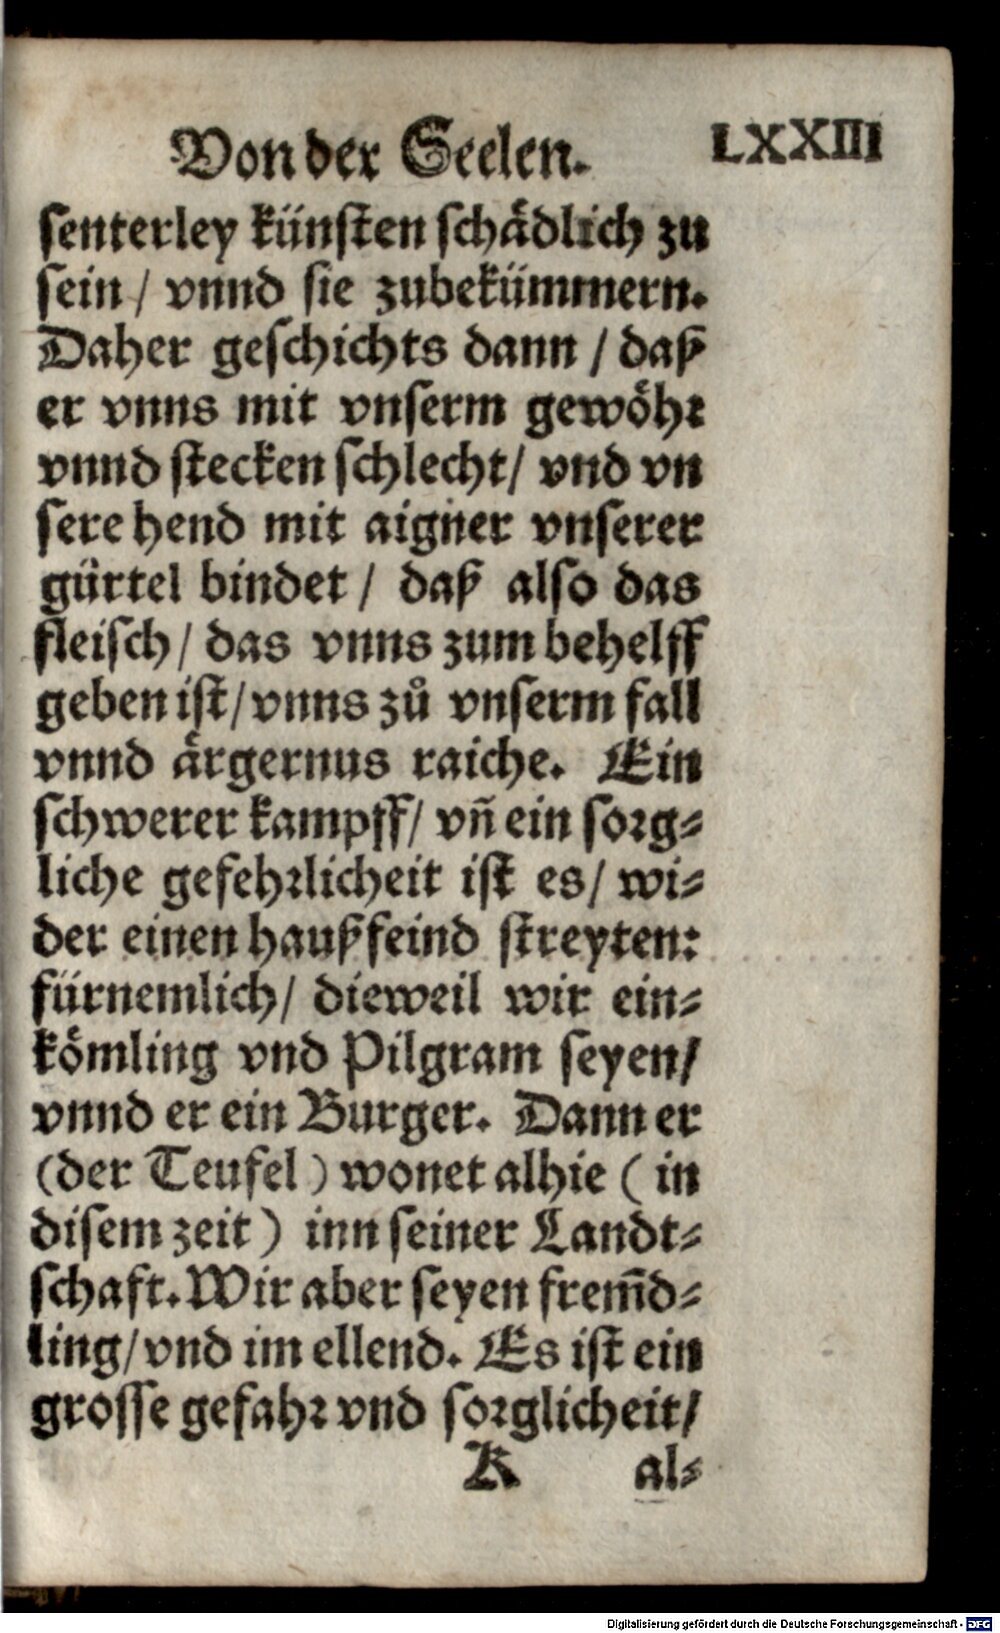 Von der Seelen. LXXIII
senterley künsten schådlich zu
sein / vnnd sie zubekümmern.
Daher geschichts dann / daß
er vnns mit vnserm gewöhr
vnnd stecken schlecht / vnd vn
sere hend mit aigner vnserer
gürtel bindet / daß also das
fleisch / das vnns zum behelff
geben ist / vnns zů vnserm fall
vnnd årgernus raiche. Ein
schwerer kampff / vñ ein sorg⸗
liche gefehrlicheit ist es / wi⸗
der einen haußfeind streyten:
fürnemlich / dieweil wir ein⸗
kömling vnd Pilgram seyen /
vnnd er ein Burger. Dann er
(der Teufel) wonet alhie (in
disem zeit) inn seiner Landt⸗
schafft. Wir aber seyen frem̃d⸗
ling / vnd im ellend. Es ist ein
grosse gefahr vnd sorglicheit /
K al⸗
Digitalisierung gefördert durch die Deutsche Forschungsgemeinschaft - DFG